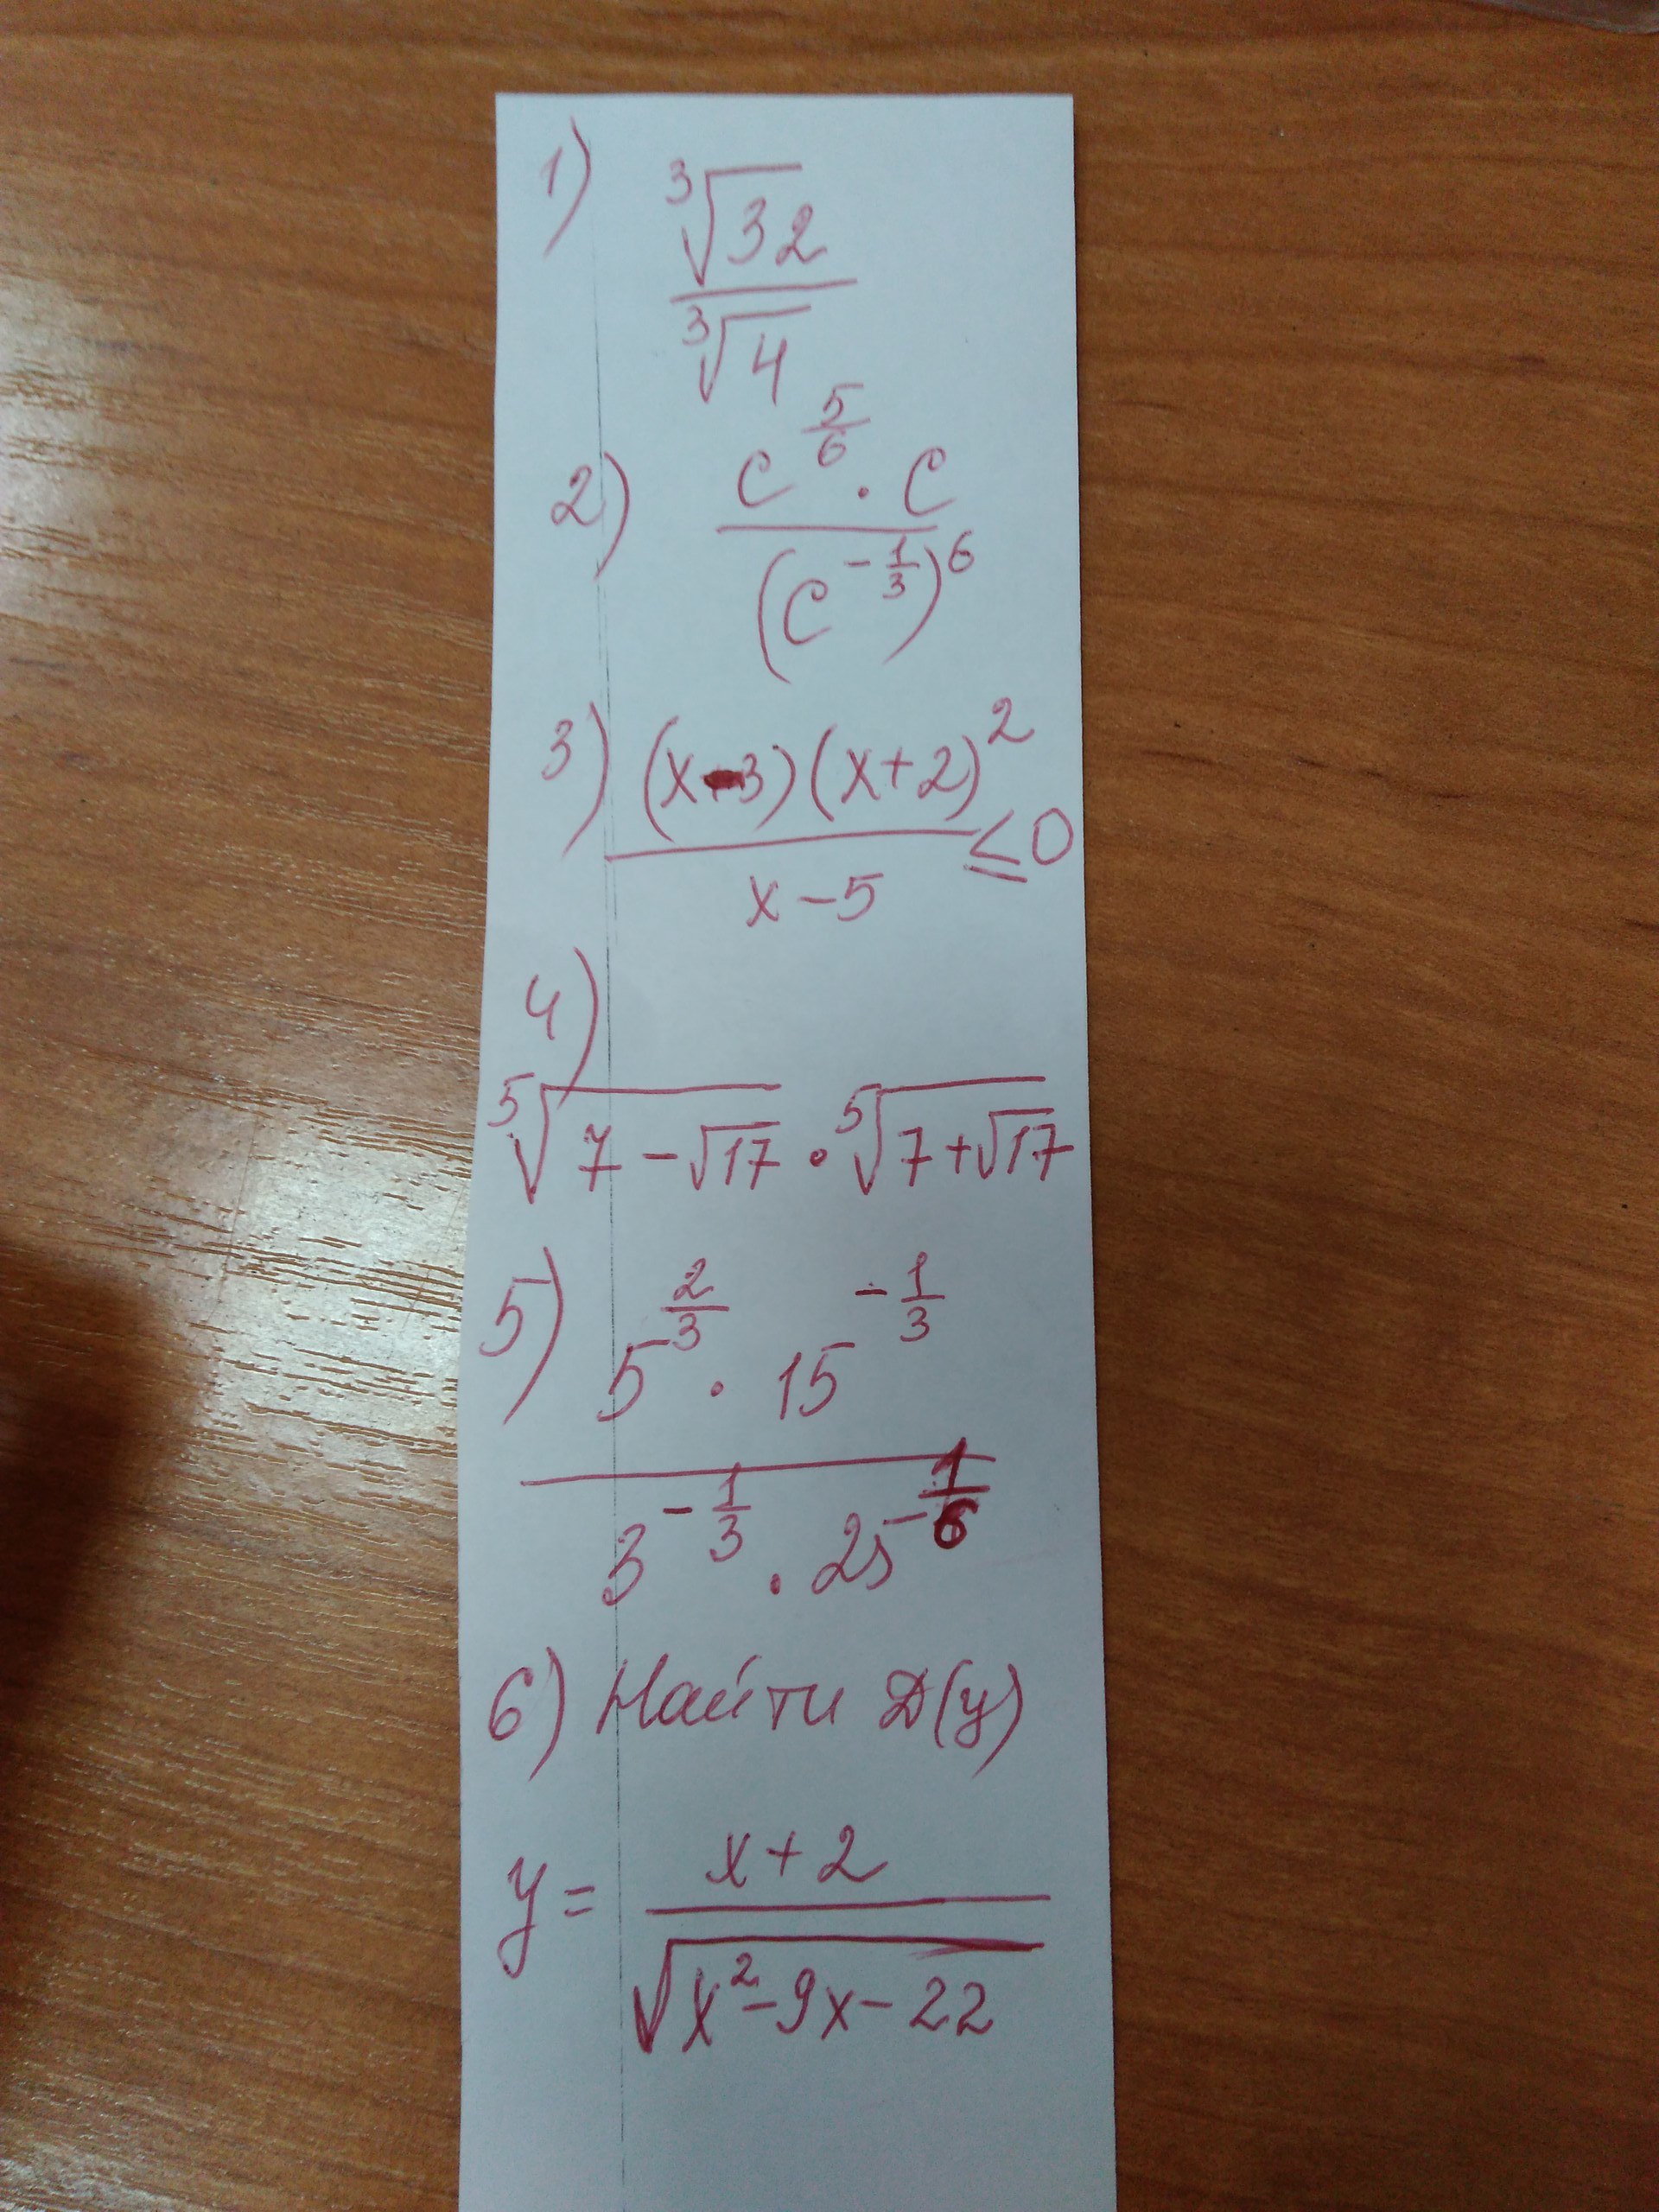 1) ∛32 / ∛4
2) (c^(5/6) · c) / (c^(-1/3))^6
3) (x-3)(x+2)^2 / (x-5) ≤ 0
4)
⁵√(7-√17) · ⁵√(7+√17)
5) (5^(2/3) · 15^(-1/3)) / (3^(-1/3) · 25^(-1/6))
6) Найти D(y)
y = (x+2) / √(x^2-9x-22)